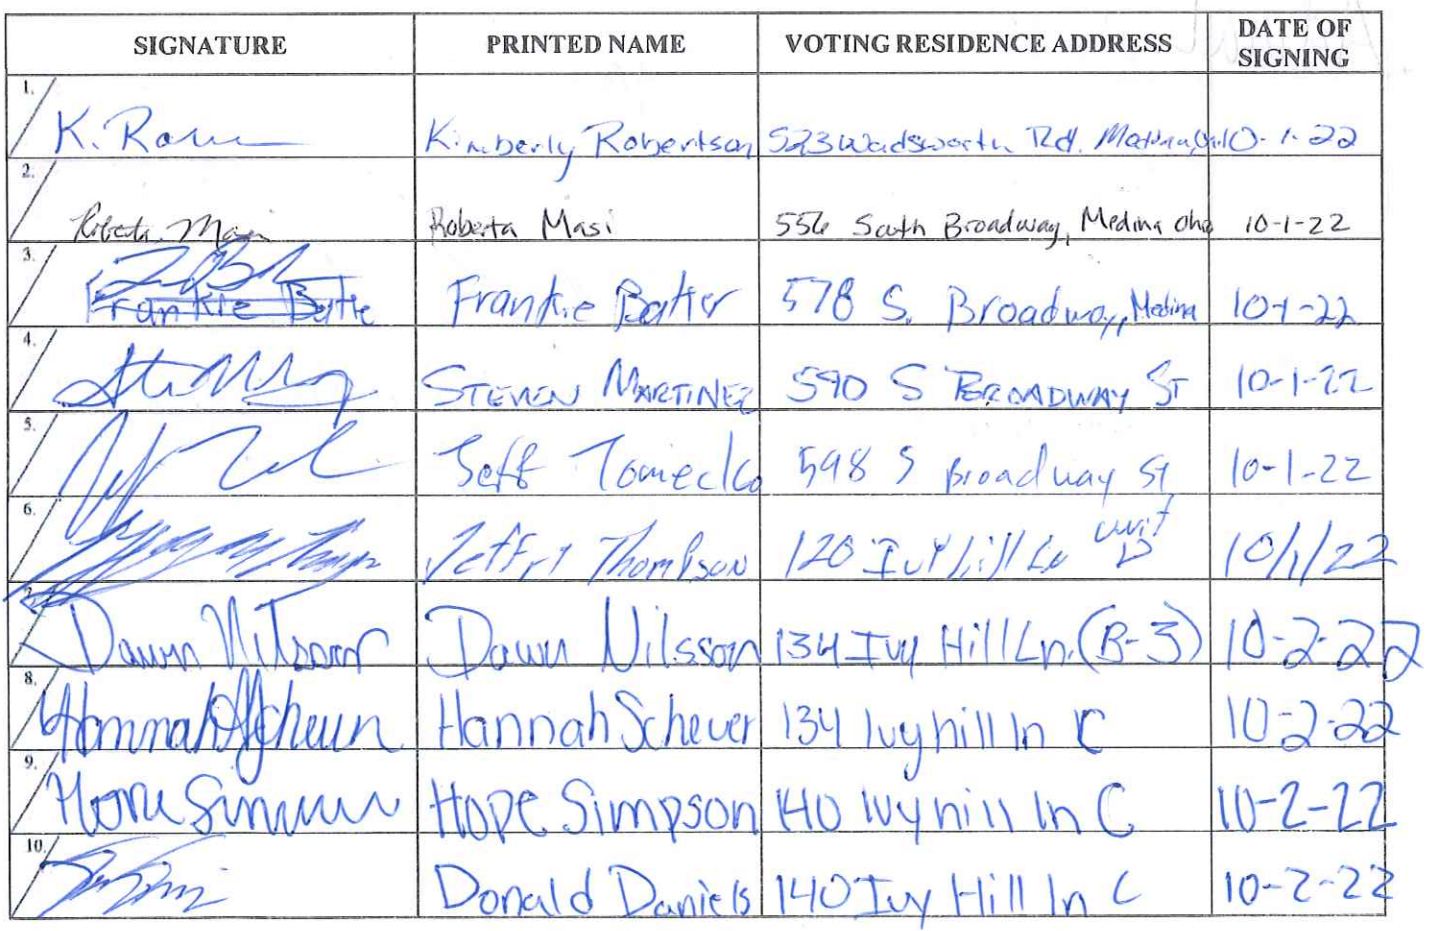 SIGNATURE PRINTED NAME VOTING RESIDENCE ADDRESS DATE OF SIGNING
1. K. Kimberly Robertson 523 Wadsworth Rd. Medina, 10-1-22
2. Roberta Masi Roberta Masi 556 South Broadway, Medina Ohio 10-1-22
3. Frankie 578 S. Broadway, Medina 10-1-22
4. STEVEN MARTINEZ 590 S BROADWAY ST 10-1-22
5. Jeff 598 S Broadway St 10-1-22
6. Thompson 120 Ivy Hill Ln unit D 10/1/22
7. Dawn Nilsson Dawn Nilsson 134 Ivy Hill Ln. (B-3) 10-2-22
8. Hannah Hannah Scheuer 134 Ivy hill ln C 10-2-22
9. Hope Simpson 140 Ivy hill ln C 10-2-22
10. Donald Daniels 140 Ivy Hill ln C 10-2-22